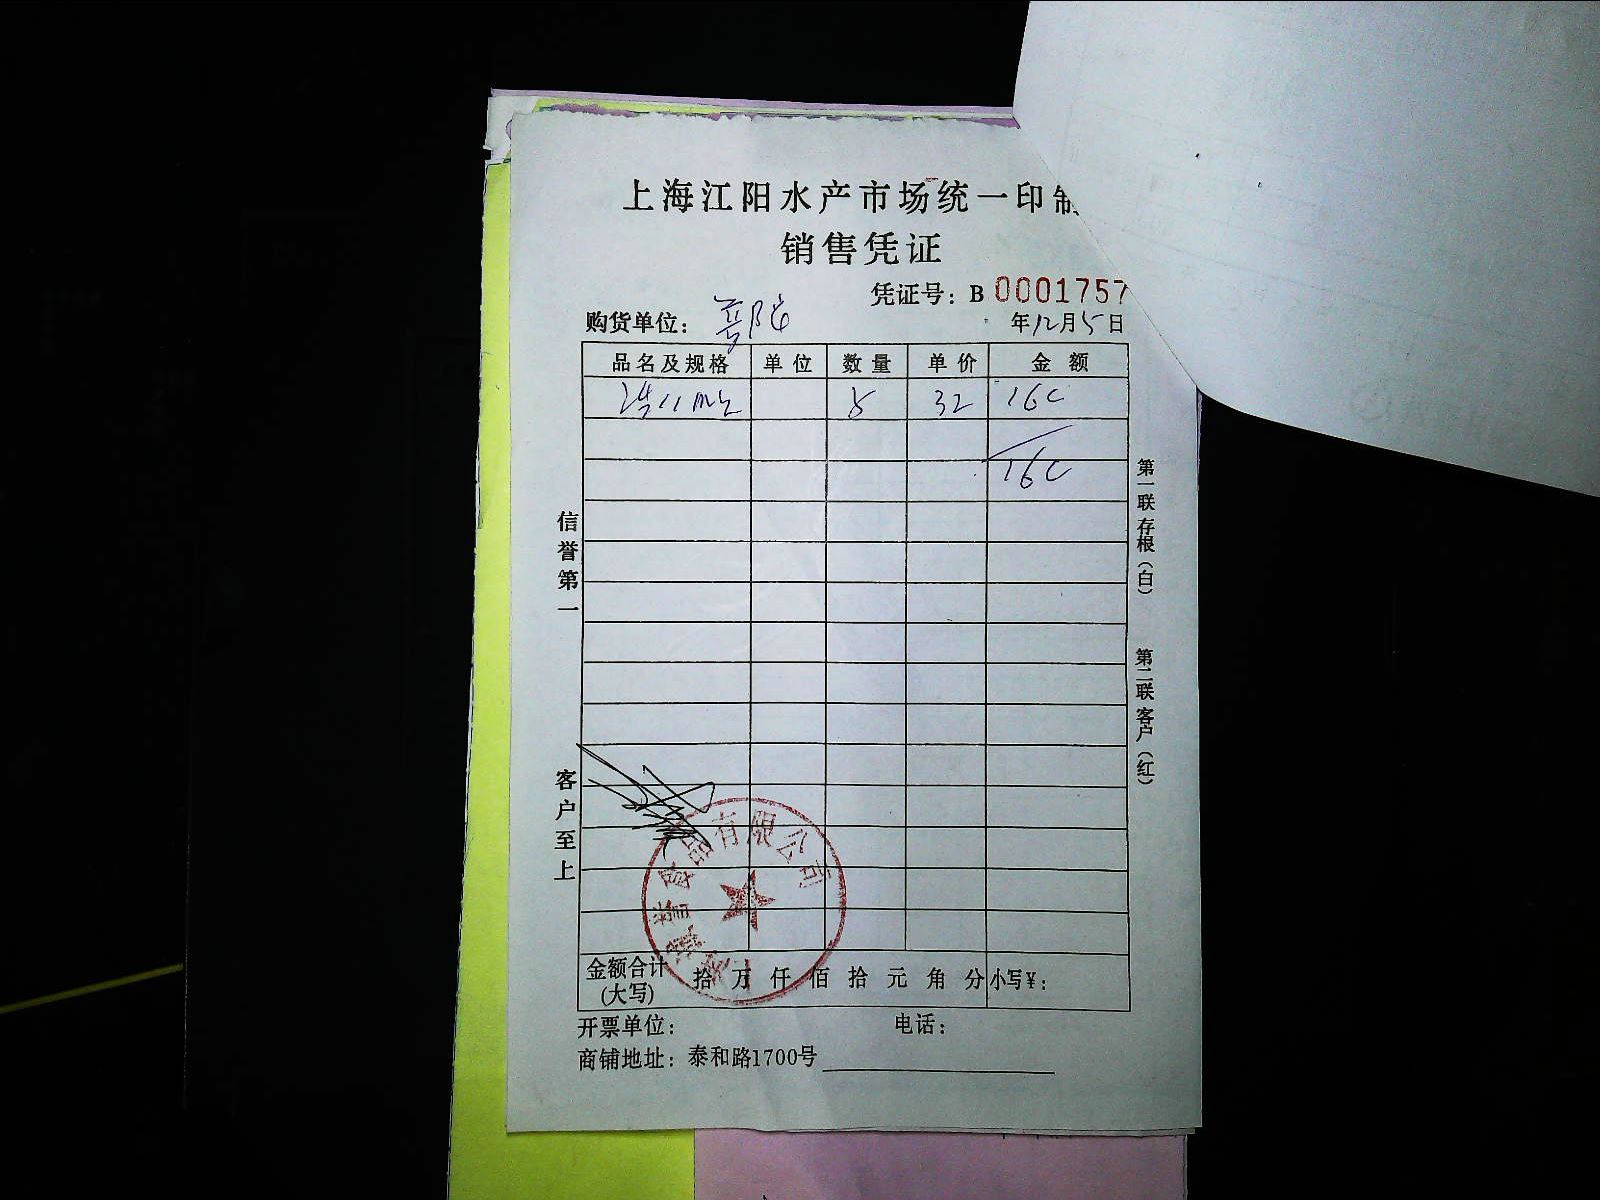 上海江阳水产市场统一印制
销售凭证
凭证号：B 0001757
购货单位：普陀 年12月5日
品名及规格 单位 数量 单价 金额
5 32 160
160
信誉第一
客户至上
第一联存根（白）
第二联客户（红）
食品有限公司
金额合计(大写) 拾 万 仟 佰 拾 元 角 分 小写¥：
开票单位： 电话：
商铺地址：泰和路1700号